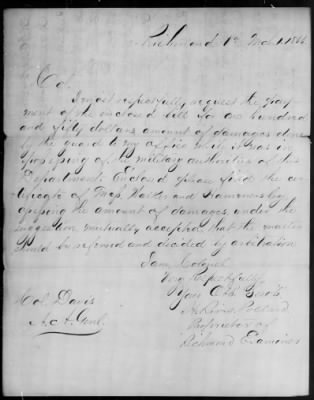 Richmond Va Mch 1, 1866
Col.
I most respectfully request the pay-
ment of the enclosed bill for one hundred
and fifty dollars amount of damages done
by the guard to my office while it was in
possession of the military authorities of this
Department. Enclosed please find the cer-
tificate of Mess and
the amount of damages, under the
suggestion, mutually accepted, that the matter
should be referred and decided by arbitration
I am, Colonel
Very Respectfully
Your Obt. Servt.
H. Rives Pollard
Proprietor of
Richmond Examiner
Col. Davis
A. A. Genl.